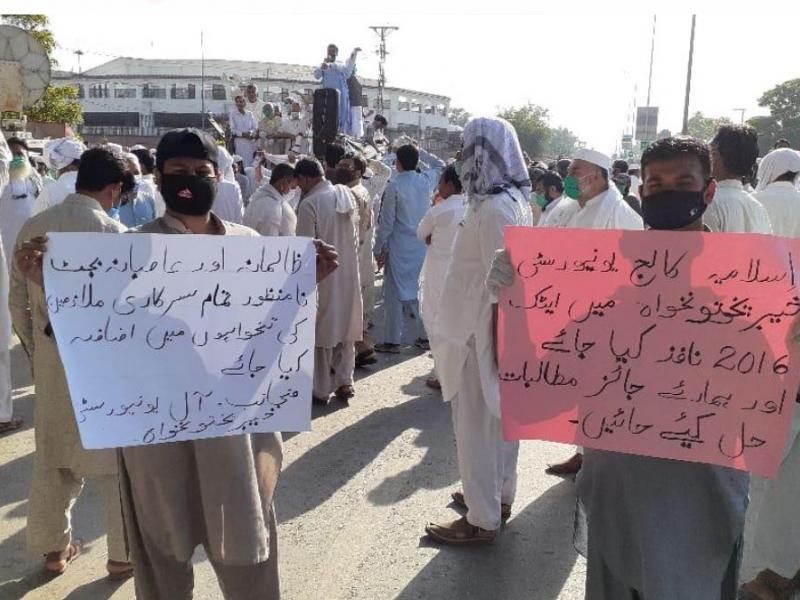 ظالمانہ اور عاصبانہ بجٹ
نامنظور تمام سرکاری ملازمین
کی تنخواہوں میں اضافہ
کیا جائے
منجانب۔ آل یونیورسٹی
خیبر پختونخواہ۔
اِسلامیہ کالج یونیورسٹی
خیبر پختونخواہ میں ایٹک۔
2016 نافذ کیا جائے
اور ہمارے جائز مطالبات
حل کیئے جائیں۔